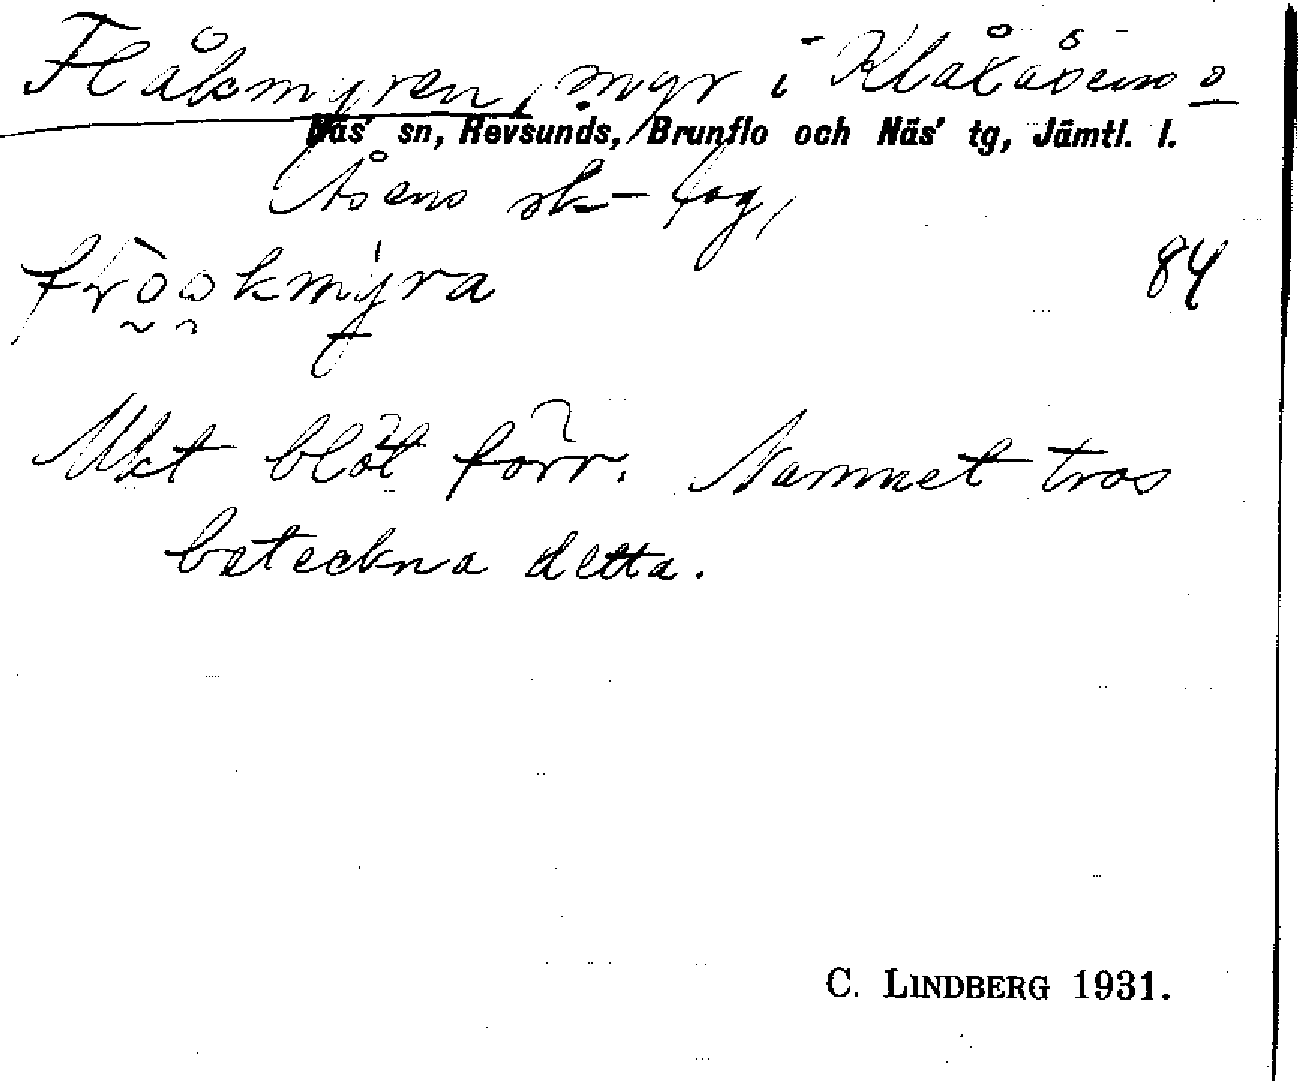 Flåkmyren, myr i Klåxåsens o
Näs' sn, Revsunds, Brunflo och Näs' tg, Jämtl. l.
Åsens sk-lag,
84
Mkt blöt förr. Namnet tros
beteckna detta.
C. LINDBERG 1931.